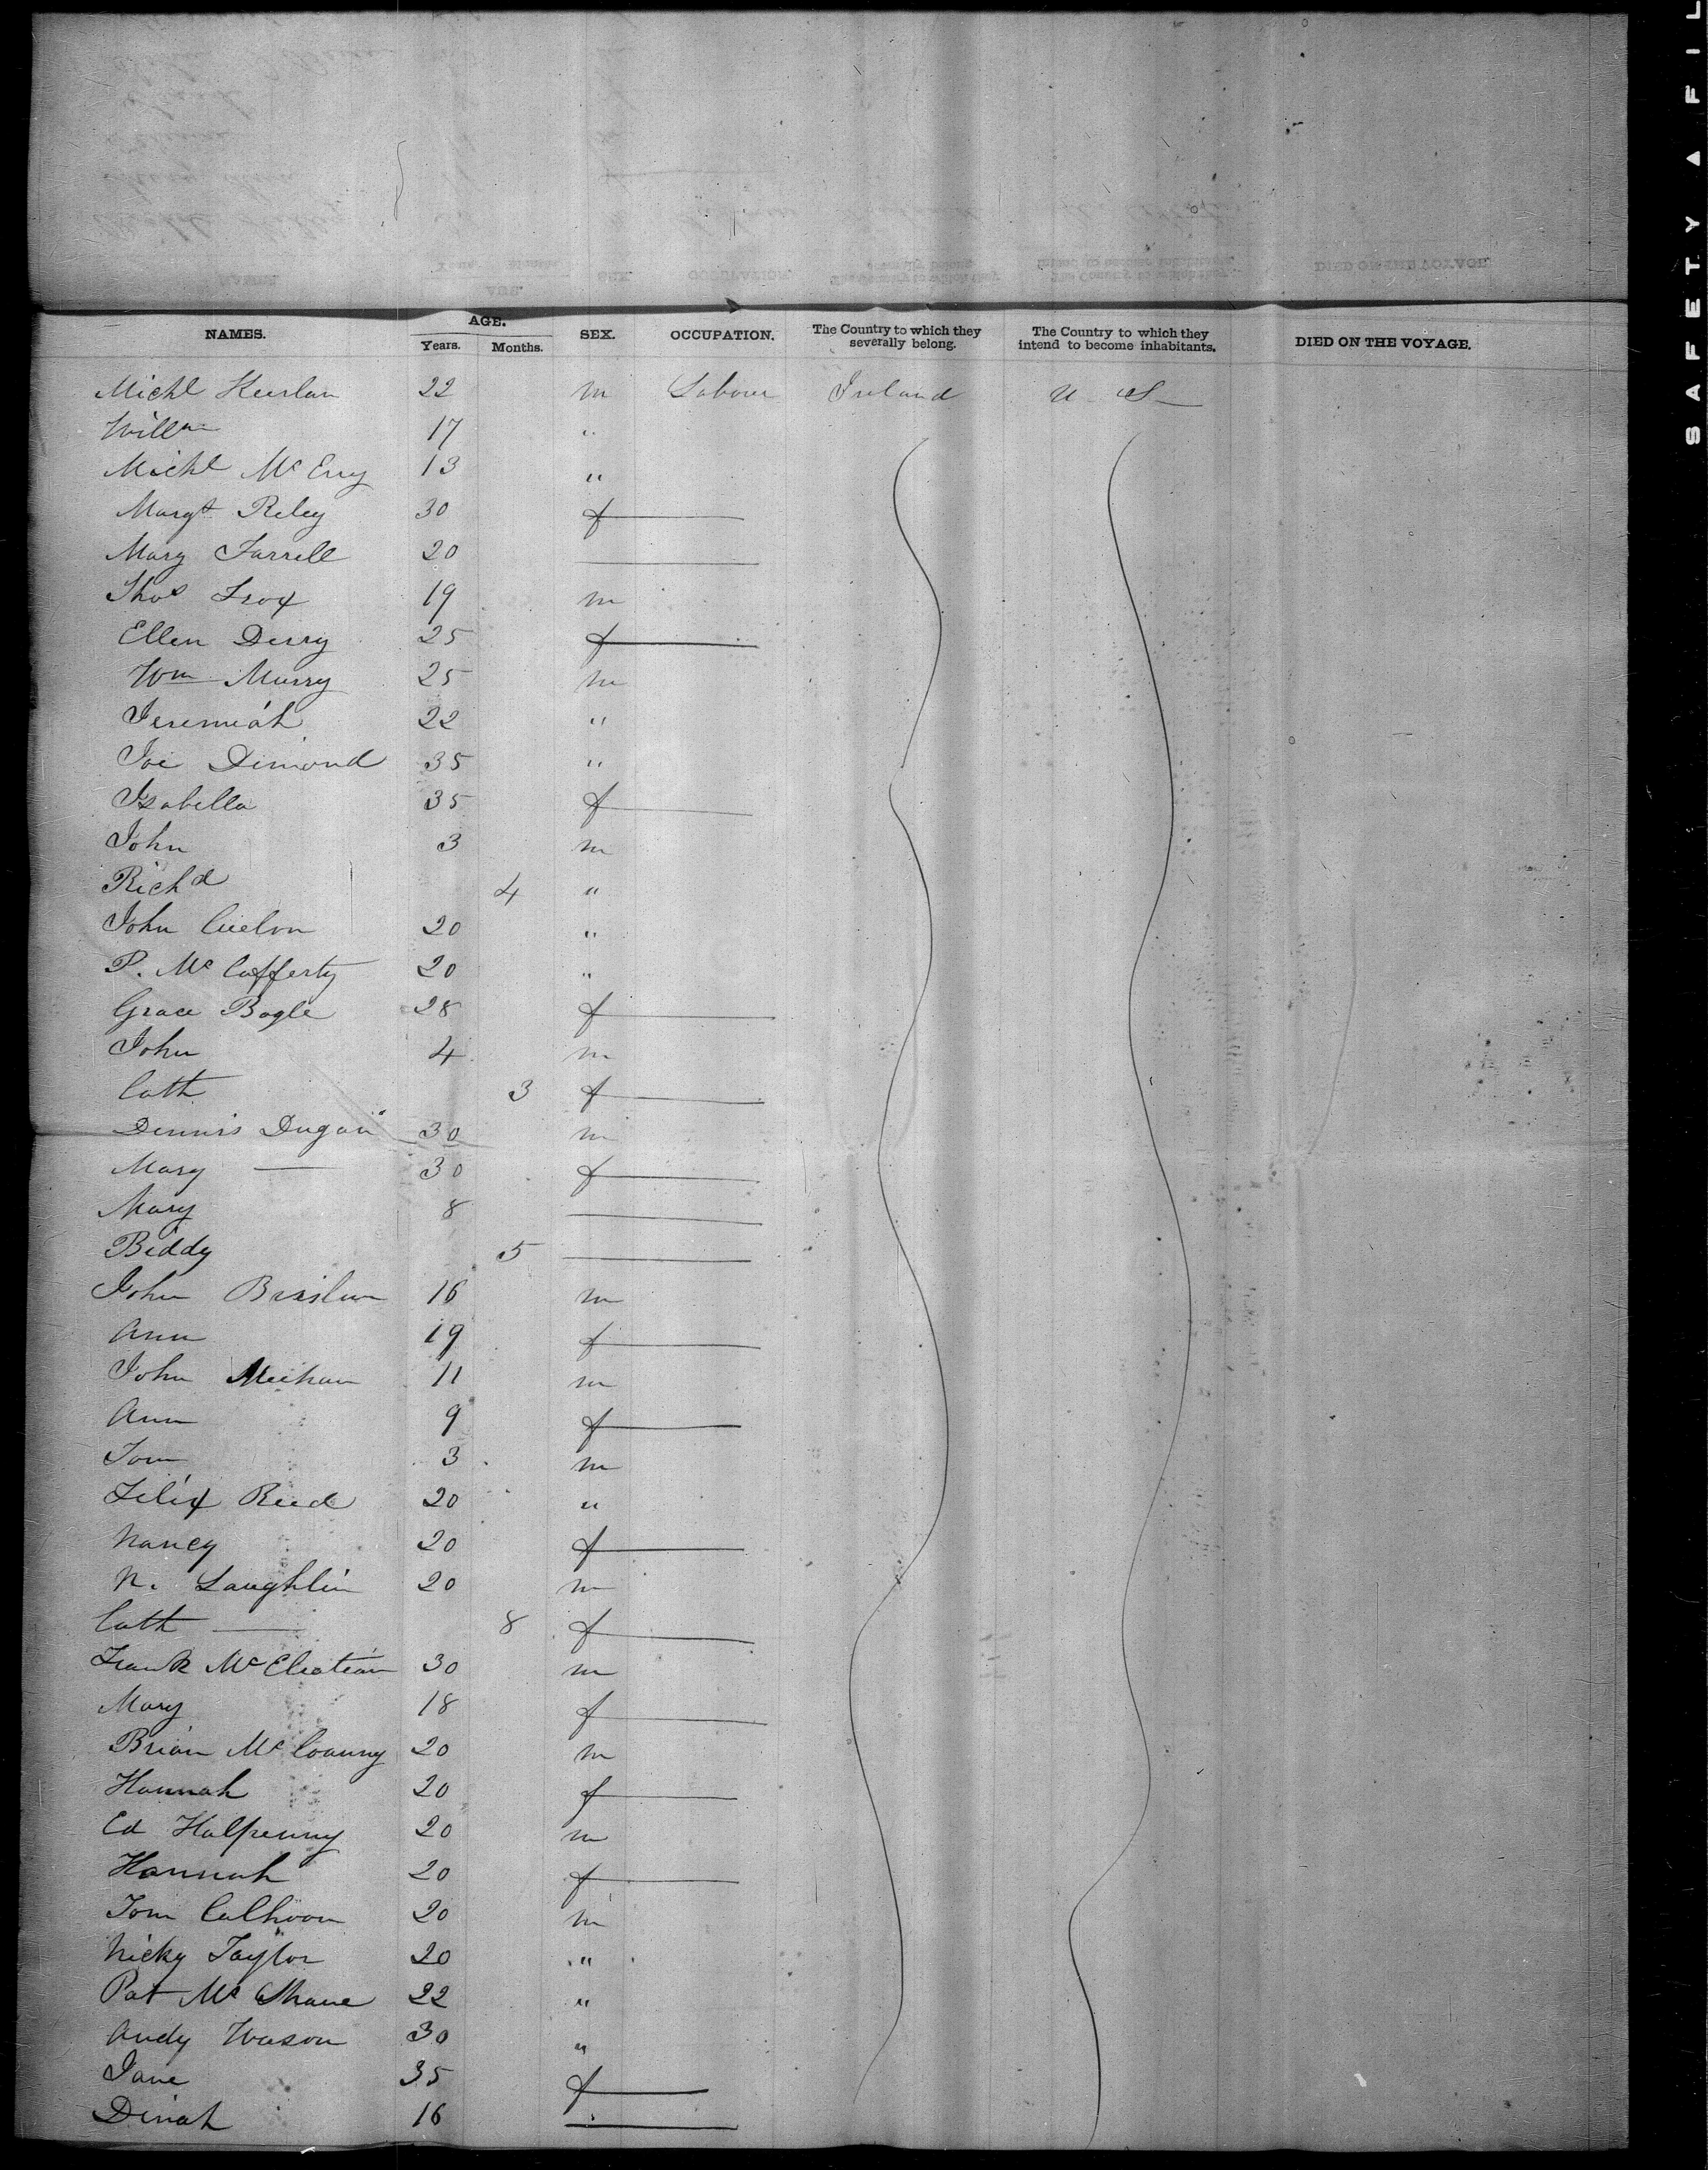 NAMES. AGE. Years. Months. SEX. OCCUPATION. The Country to which they severally belong. The Country to which they intend to become inhabitants. DIED ON THE VOYAGE.
Michl 22 m Labour Ireland U S
Willm 17 "
Michl Mc Eny 13 "
Margt Riley 30 f
Mary Farrell 20
Thos Troy 19 m
Ellen Derry 25 f
Wm Murry 25 m
Jeremiah 22 "
Joe Dimond 35 "
Isabella 35 f
John 3 m
Richd 4 "
John 20 "
P. Mc Cafferty 20 "
Grace Bogle 28 f
John 4 m
Cath 3 f
Dennis Dugan 30 m
Mary 30 f
Mary 8
Biddy 5
John Brislin 16 m
Ann 19 f
John Meehan 11 m
Ann 9 f
Tom 3 m
Felix Reed 20 "
Nancy 20 f
N. Laughlin 20 m
Cath 8 f
Frank 30 m
Mary 18 f
Brian 20 m
Hannah 20 f
Ed Halpenny 20 m
Hannah 20 f
Tom Calhoon 20 m
Nicky Taylor 20 "
Pat Mc Shane 22 "
Andy Wason 30 "
Jane 35 f
Dinah 16
SAFETY ▲ FIL